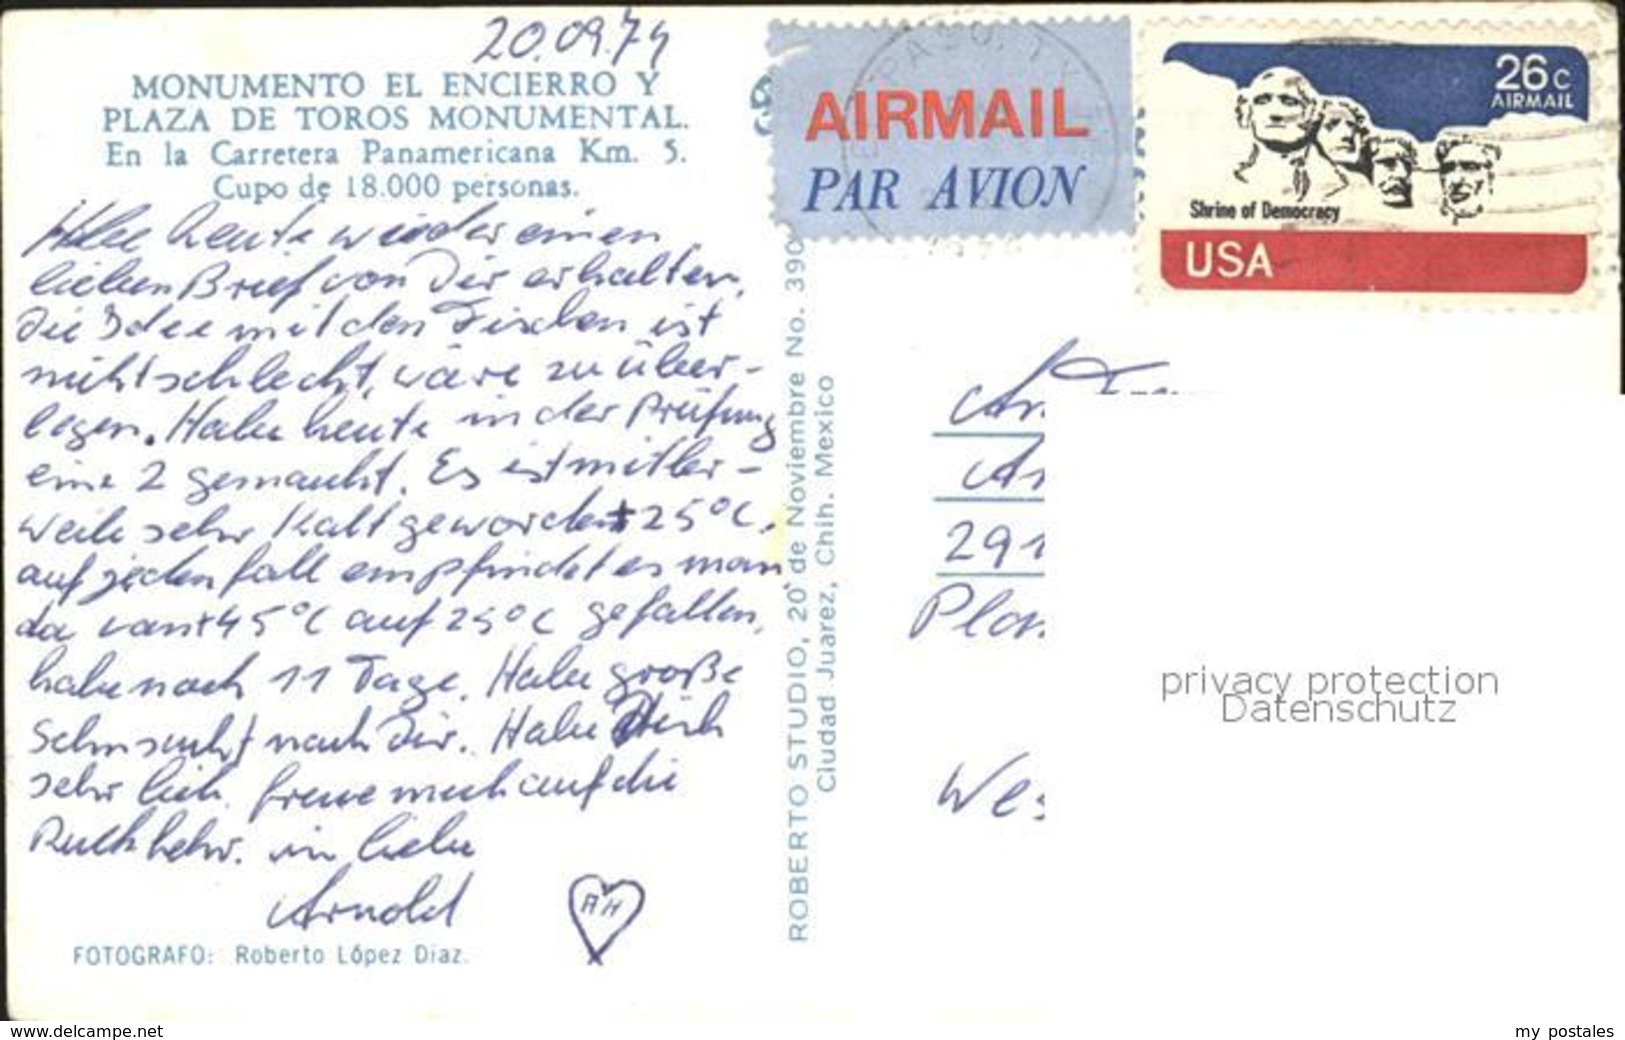 20.09.74
MONUMENTO EL ENCIERRO Y
PLAZA DE TOROS MONUMENTAL.
En la Carretera Panamericana Km. 5.
Cupo de 18.000 personas.
Habe heute wieder einen
lieben Brief von Dir erhalten,
die Idee mit den Fischen ist
nicht schlecht, wäre zu über-
legen. Habe heute in der Prüfung
eine 2 gemacht. Es ist mittler-
weile sehr kalt geworden +25°C,
auf jeden fall empfindet es man,
da von +45°C auf 25°C gefallen,
habe noch 11 Tage. Habe große
Sehnsucht nach Dir. Habe Dich
sehr lieb. freue mich auf die
Rückkehr. in liebe
Arnold
AH
FOTOGRAFO: Roberto López Díaz.
ROBERTO STUDIO, 20 de Noviembre No. 390
Ciudad Juarez, Chih. Mexico
AIRMAIL
PAR AVION
26c
AIRMAIL
Shrine of Democracy
USA
291
privacy protection
Datenschutz
www.delcampe.net
my postales